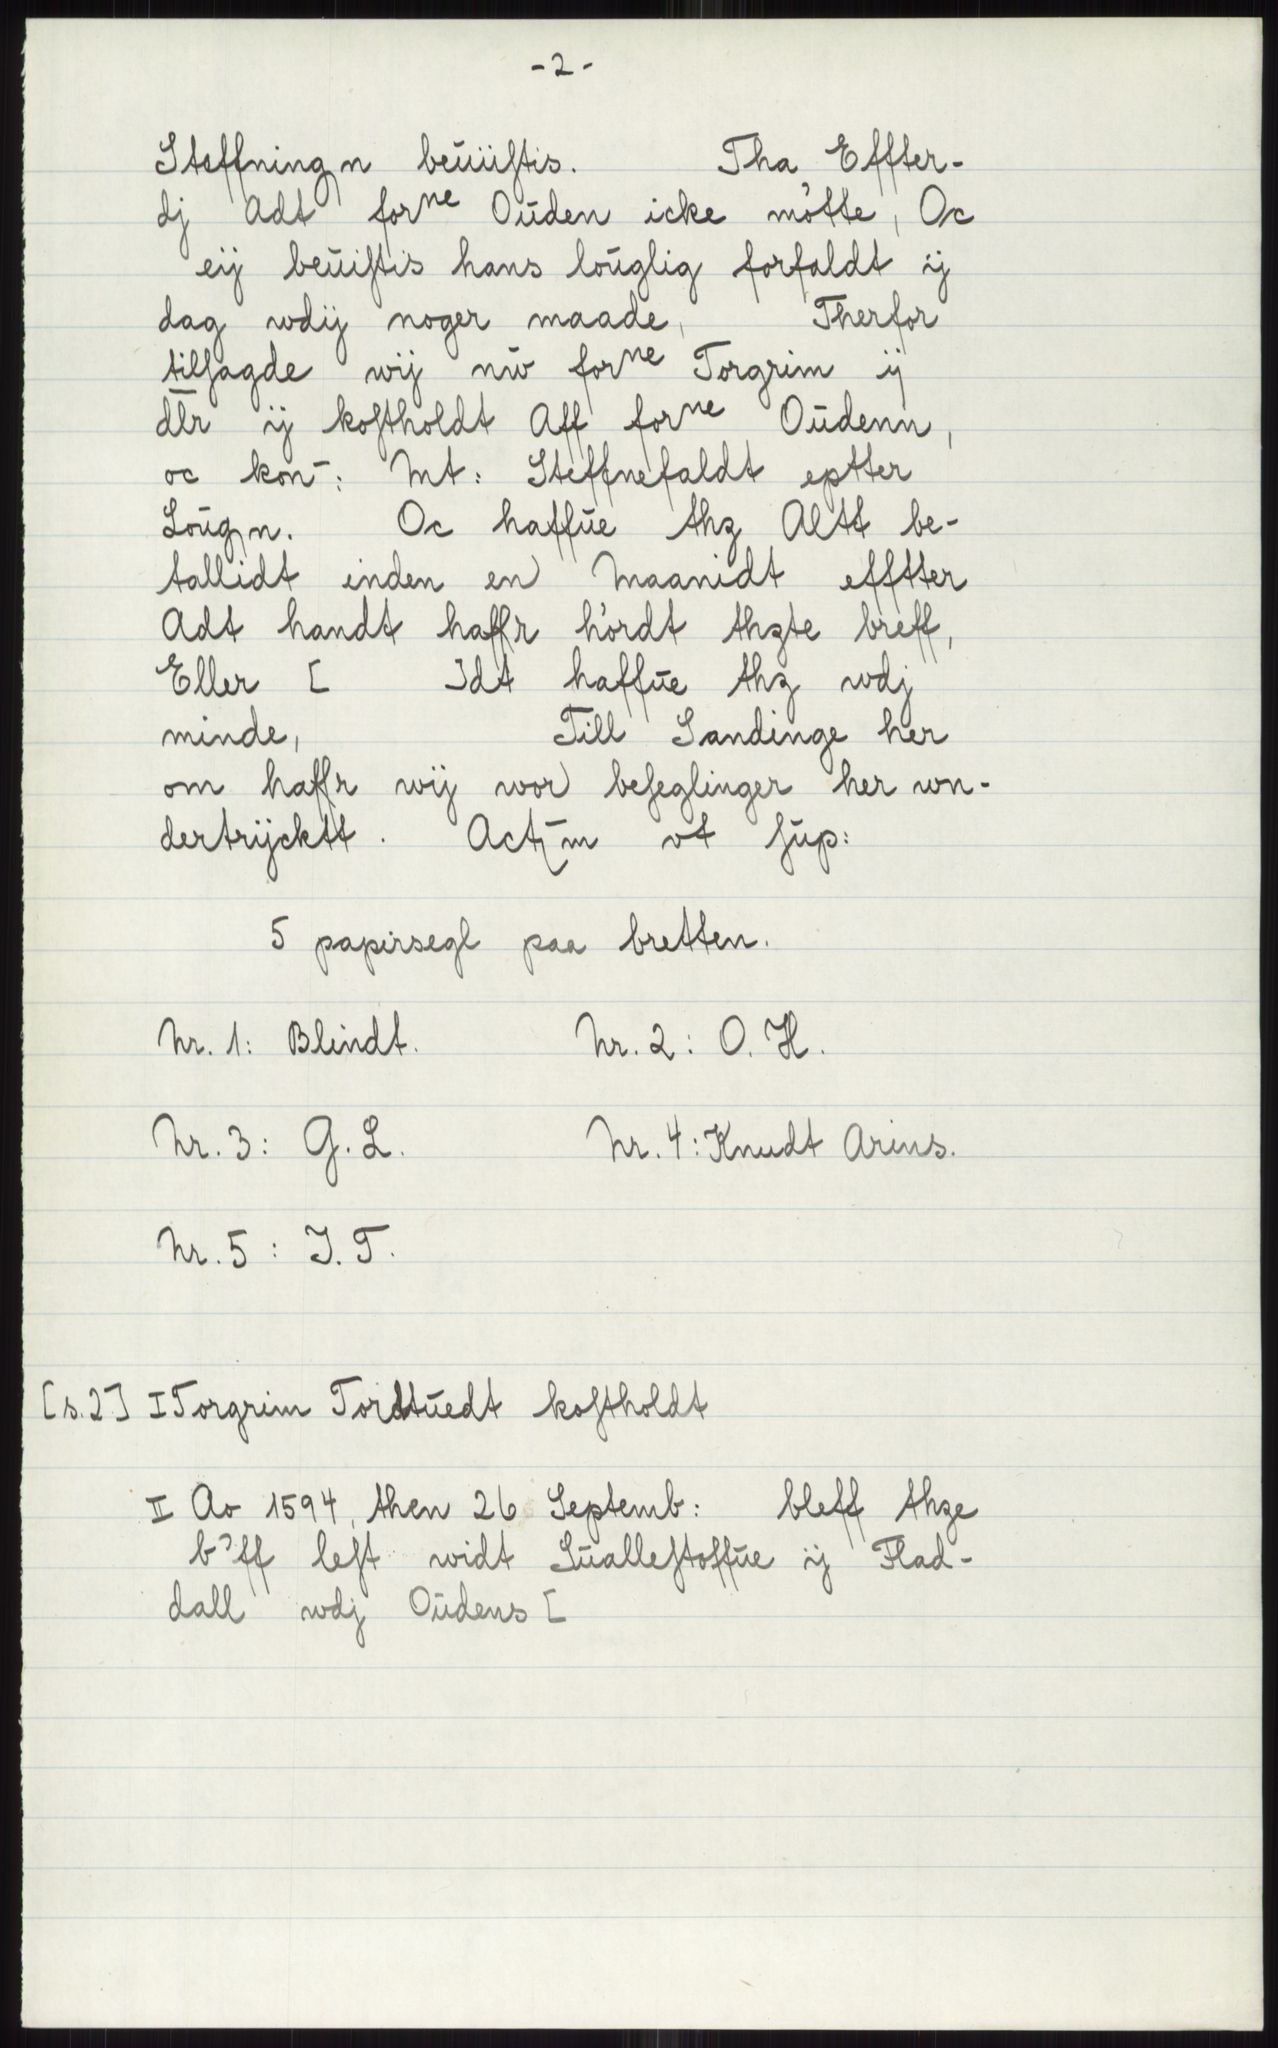 -2-
Steffningn beūiistis. Tha Effter-
dj Adt forne Oūden icke møtte, Oc
eij beūistis hans loūglig forfaldt ij
dag wdij noger maade, Therfor
tilsagde wij nū forne Torgrim ij
dlr ij kostholdt Aff forne Oūdenn,
oc kon-: Mt: Steffnefaldt eptter
Loūgn. Oc haffūe thz Altt be-
tallidt inden en Maanidt efftter
Adt handt haffr hørdt thzte breff,
Eller [ ]dt haffūe thz wdj
minde, Till Sandinge her
om haffr wij wor beseglinger her wn-
dertrÿcktt. Actm vt sup:
5 papirsegl paa bretten.
Nr. 1: Blindt. Nr. 2: O. H.
Nr. 3: G. L. Nr. 4: Knudt Arins.
Nr. 5: J. T.
[s. 2] I Torgrim Tordtūedt kostholdt
II Ao 1594, then 26 Septemb: bleff thze
b'ff lest widt Sūallestoffūe ij Flad-
dall wdj Oūdens [